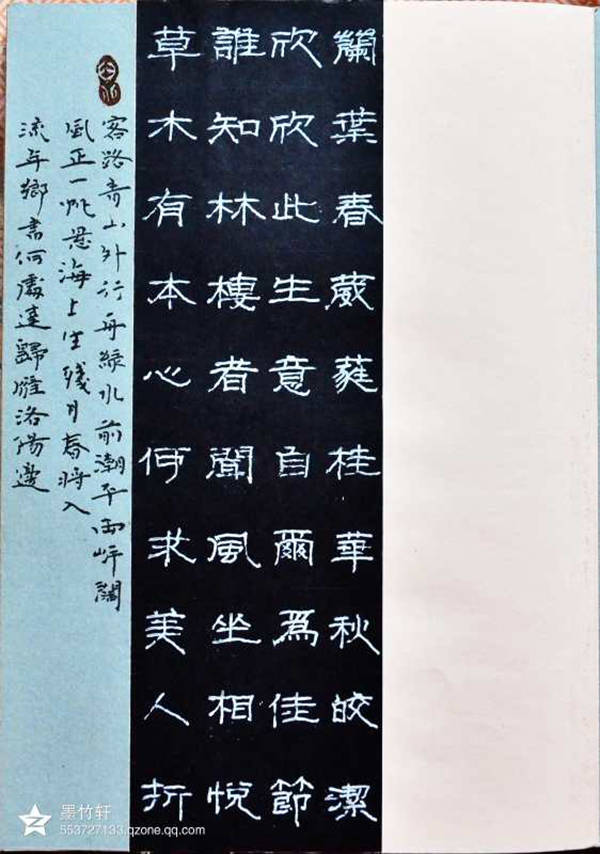 蘭葉春葳蕤桂華秋皎潔
欣欣此生意自爾爲佳節
誰知林樓者聞風坐相悅
草木有本心何求美人折
客路青山外行舟綠水前潮平兩岸闊
風正一帆懸海上生殘月春將入
流年鄉書何處達歸雁洛陽邊
墨竹轩
553727133.qzone.qq.com